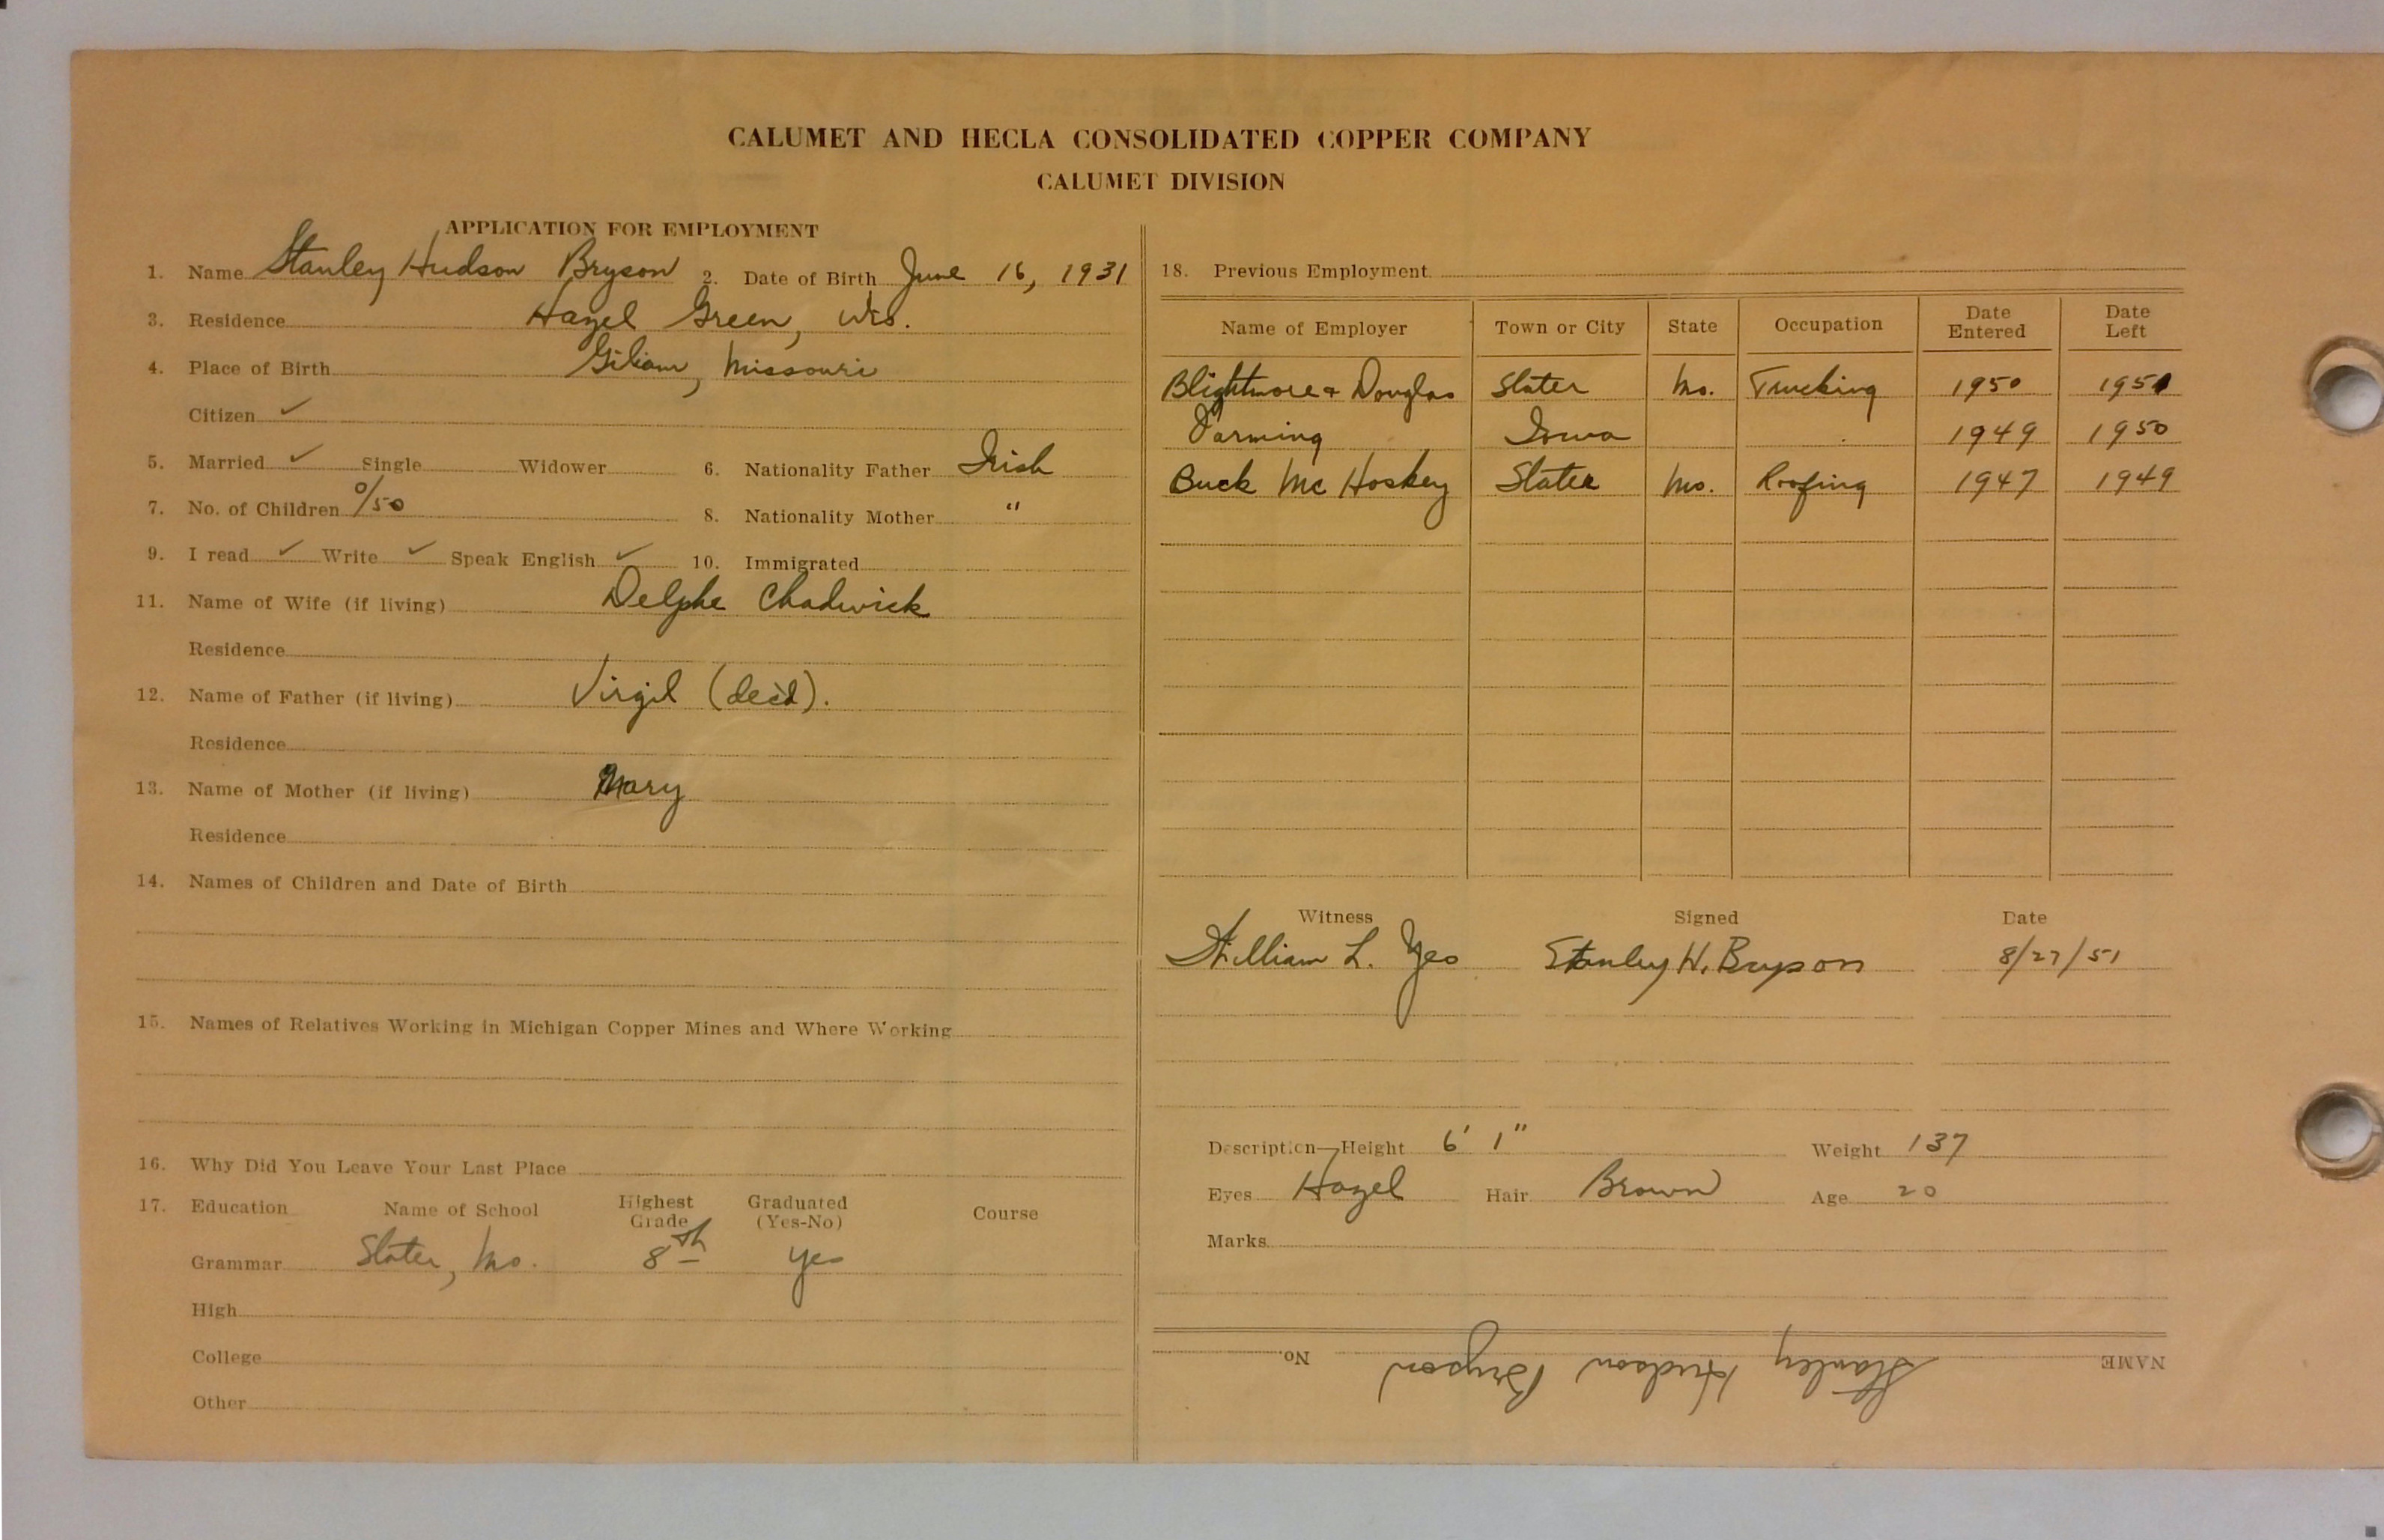 CALUMET AND HECLA CONSOLIDATED COPPER COMPANY
CALUMET DIVISION
APPLICATION FOR EMPLOYMENT
1. Name Stanley Hudson Bryson 2. Date of Birth June 16, 1931
3. Residence Hazel Green, Wis.
4. Place of Birth Giliam, Missouri
Citizen ✓
5. Married ✓ Single Widower 6. Nationality Father Irish
7. No. of Children 0/50 8. Nationality Mother "
9. I read ✓ Write ✓ Speak English ✓ 10. Immigrated
11. Name of Wife (if living) Delphe Chadwick
Residence
12. Name of Father (if living) Virgil (dec'd).
Residence
13. Name of Mother (if living) Mary
Residence
14. Names of Children and Date of Birth
15. Names of Relatives Working in Michigan Copper Mines and Where Working
16. Why Did You Leave Your Last Place
17. Education Name of School Highest Grade Graduated (Yes-No) Course
Grammar Slater, Mo. 8th Yes
High
College
Other
18. Previous Employment
Name of Employer Town or City State Occupation Date Entered Date Left
Blightmore & Douglas Slater Mo. Trucking 1950 1951
Farming Iowa 1949 1950
Buck Mc Hoskey Slater Mo. Roofing 1947 1949
Witness Signed Date
William L. Yeo Stanley H. Bryson 8/27/51
Description—Height 6' 1" Weight 137
Eyes Hazel Hair Brown Age 20
Marks
NAME Stanley Hudson Bryson No.